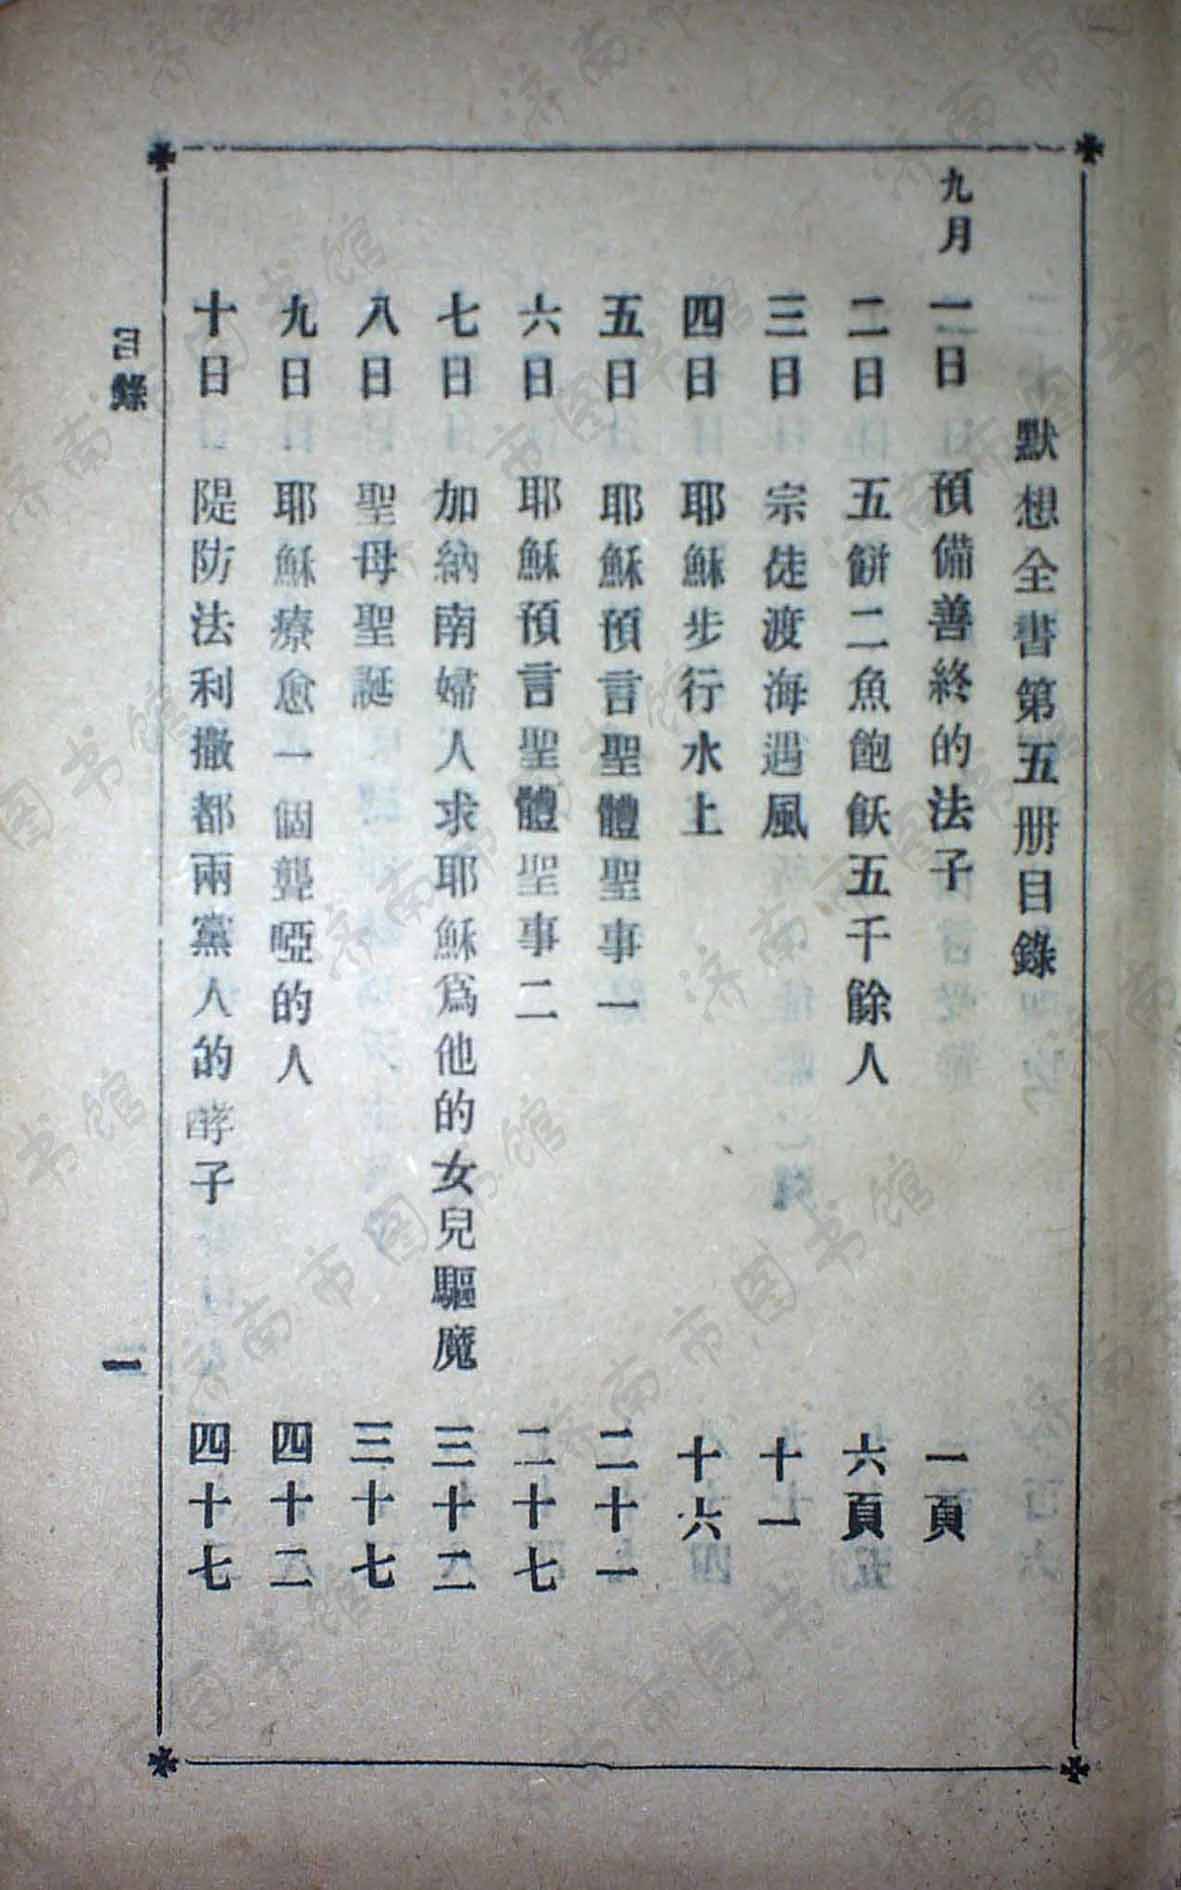 默想全書第五册目錄
九月 一日 預備善終的法子 一頁
二日 五餅二魚飽飫五千餘人 六頁
三日 宗徒渡海遇風 十一
四日 耶穌步行水上 十六
五日 耶穌預言聖體聖事一 二十一
六日 耶穌預言聖體聖事二 二十七
七日 加納南婦人求耶穌爲他的女兒驅魔 三十二
八日 聖母聖誕 三十七
九日 耶穌療愈一個聾啞的人 四十二
十日 隄防法利撒都兩黨人的酵子 四十七
目錄 一
济南市图书馆